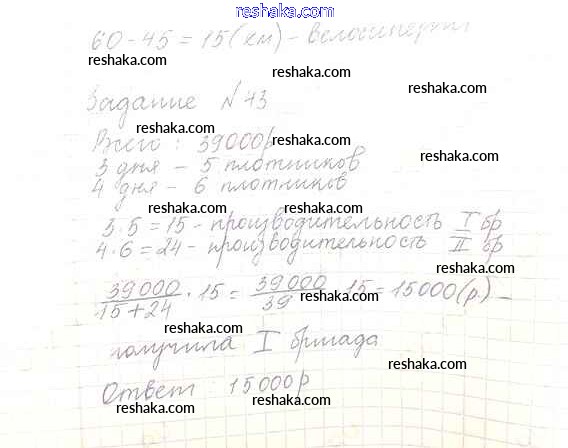 reshaka.com
60 - 45 = 15 (км) - велосипедист
reshaka.com reshaka.com
reshaka.com
Задание №43
reshaka.com
Всего : 39000р reshaka.com
3 дня – 5 плотников reshaka.com
4 дня – 6 плотников
reshaka.com reshaka.com
3·5=15 - производительность I бр
4·6=24 - производительность II бр
reshaka.com
39000/15+24 · 15 = 39000/39 · 15 = 15000(р.) –
reshaka.com
reshaka.com
получила I бригада
reshaka.com
Ответ : 15000р
reshaka.com reshaka.com
reshaka.com